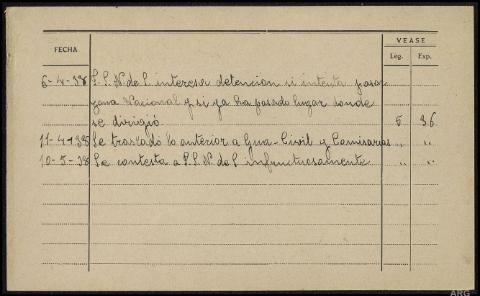 VEASE
FECHA Leg. Exp.
6-4-38 S.S.N. de S. interesa detencion si intenta pasar
zona Nacional y si ya ha pasado lugar donde
se dirigió. 5 36
11-4-38 Se trasladó lo anterior a Gua-Civil y Comisarias " "
10-5-38 Se contesta a S.S.N. de S. infructuosamente " "
ARG